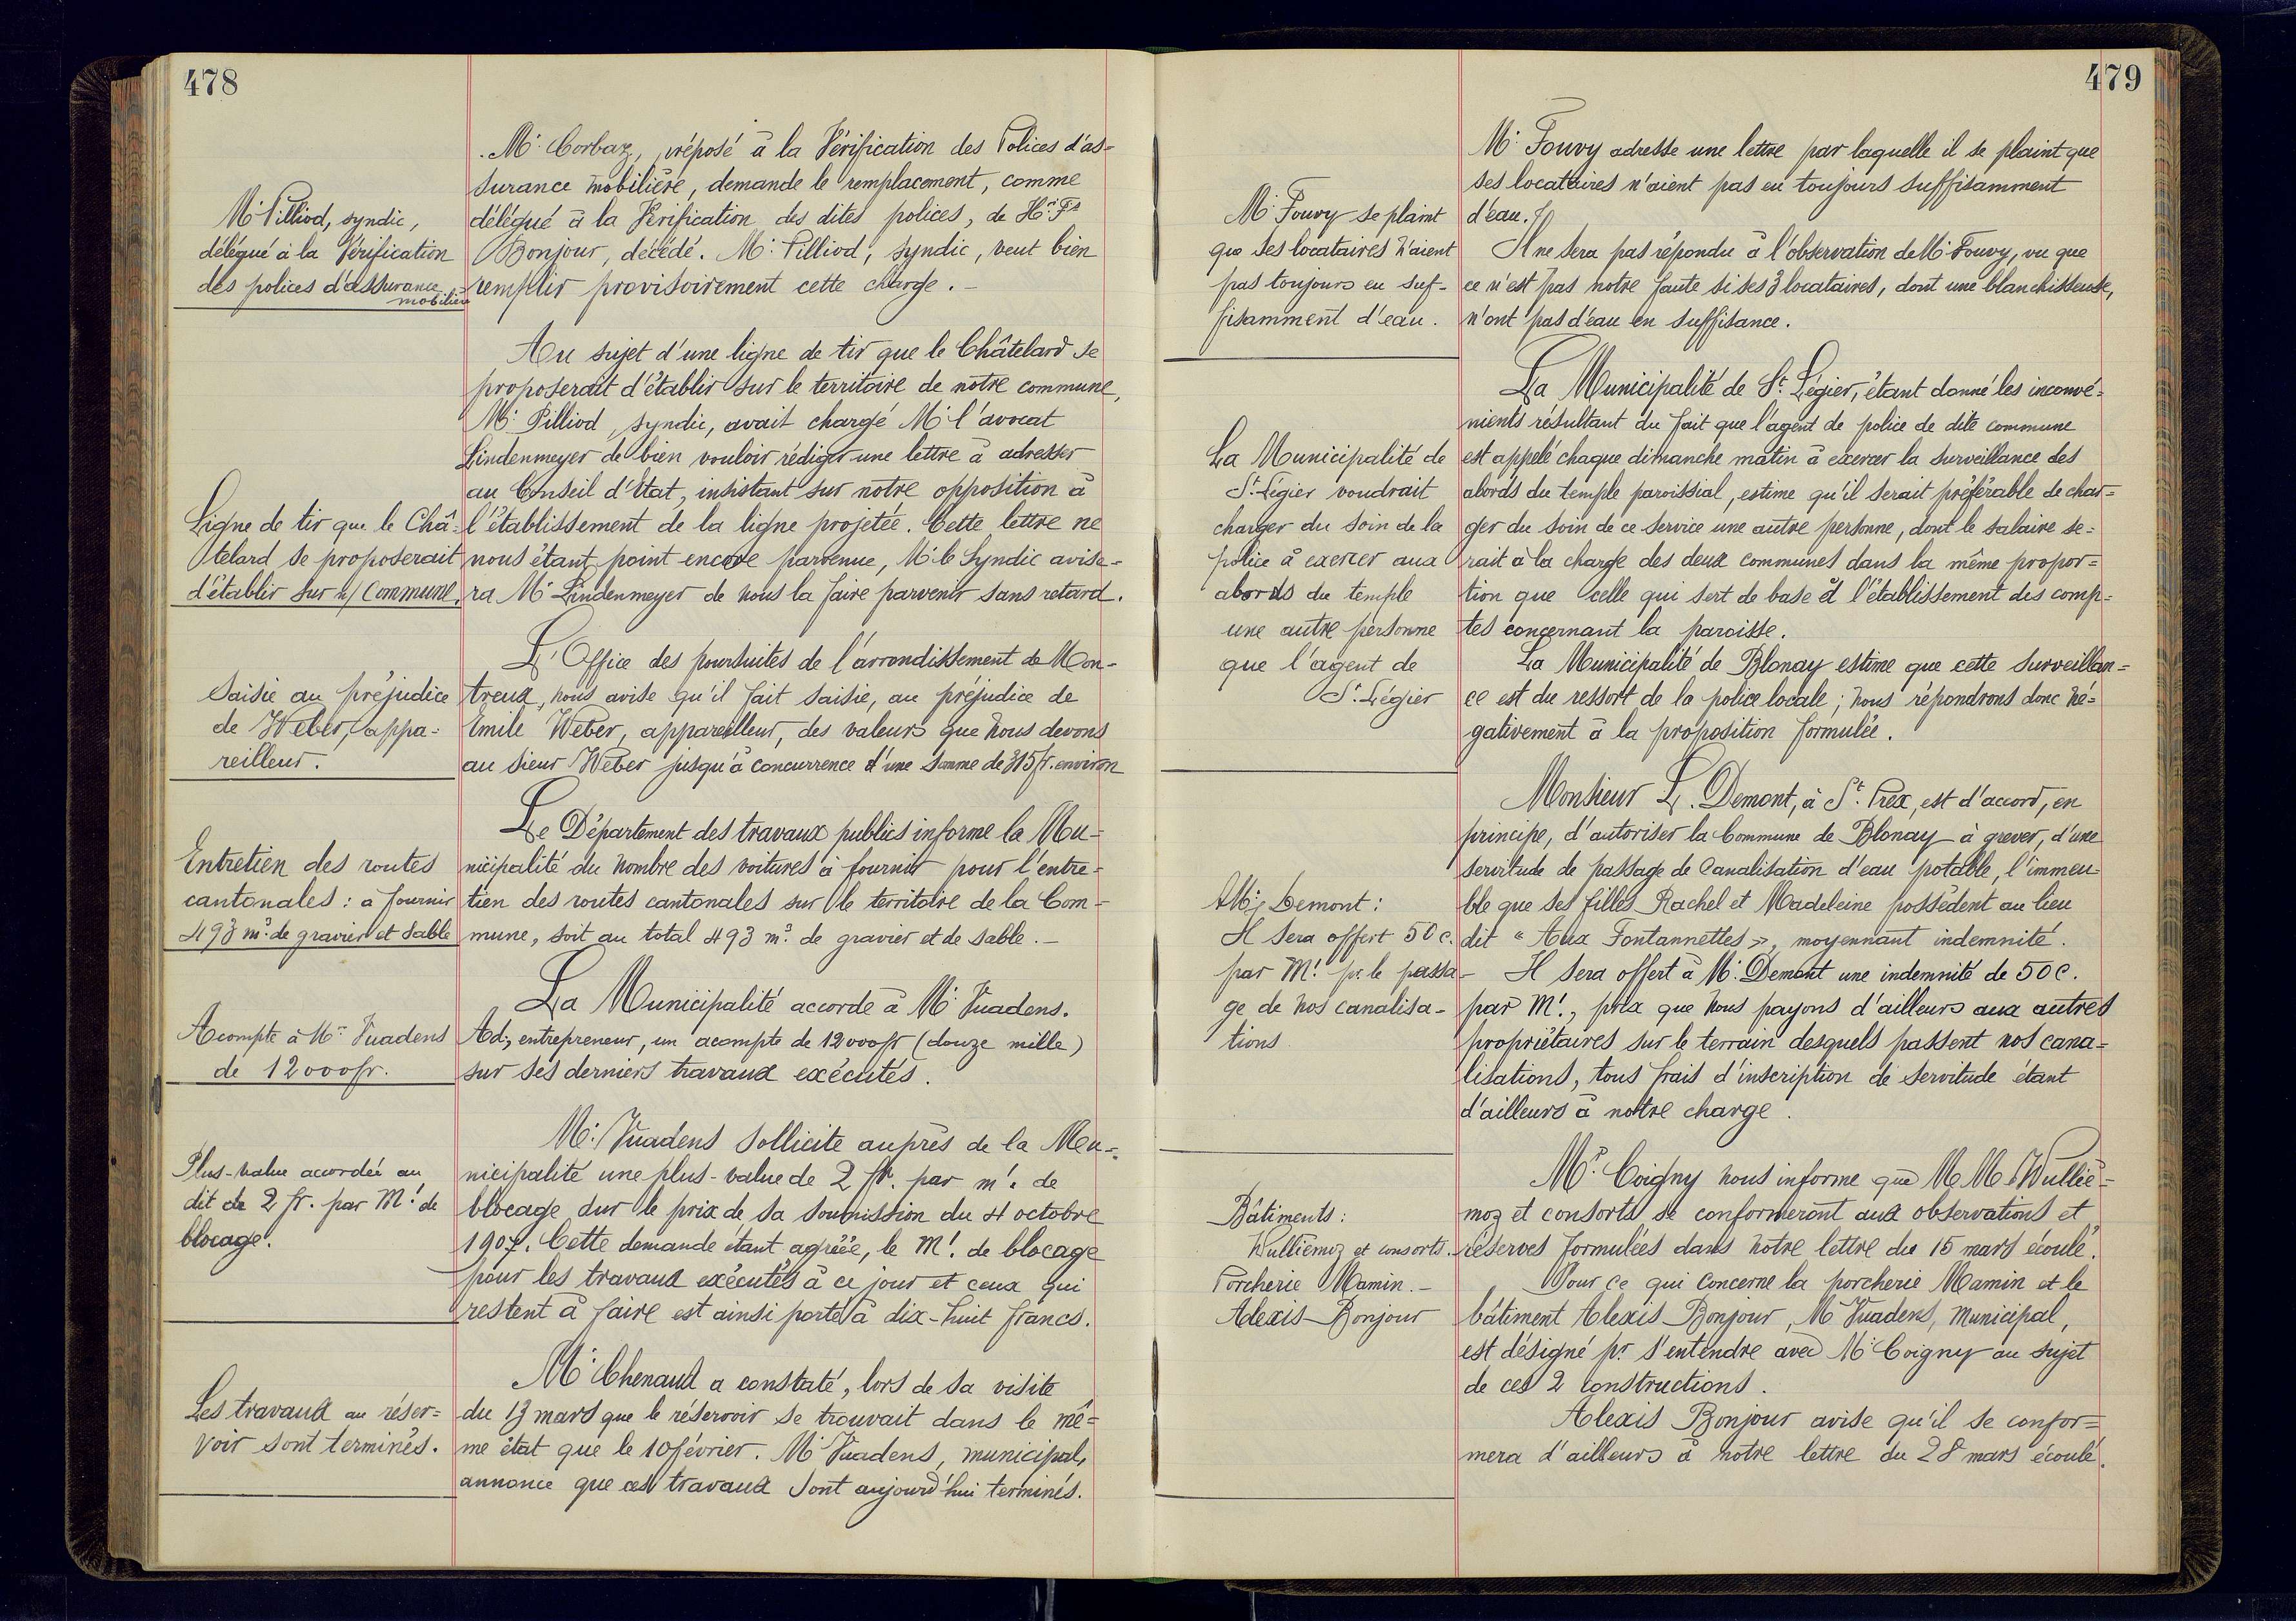 478
M^r Pilliod, syndic,
délégué à la Vérification
des polices d'assurance
mobilière
M^r Corbaz, préposé à la Vérification des Polices d'as-
surance mobilière, demande le remplacement, comme
délégué à la Vérification des dites polices, de H^ri F^s
Bonjour, décédé. M^r Pilliod, syndic, veut bien
remplir provisoirement cette charge. -
Ligne de tir que le Châ-
telard se proposerait
d'établir sur n/ Commune.
Au sujet d'une ligne de tir que le Châtelard se
proposerait d'établir sur le territoire de notre commune,
M^r Pilliod, syndic, avait chargé M^r l'avocat
Lindenmeyer de bien vouloir rédiger une lettre à adresser
au Conseil d'Etat, insistant sur notre opposition à
l'établissement de la ligne projetée. Cette lettre ne
nous étant point encore parvenue, M^r le Syndic avise-
ra M^r Lindenmeyer de nous la faire parvenir sans retard.
Saisie au préjudice
de Weber, appa-
reilleur.
L'Office des poursuites de l'arrondissement de Mon-
treux, nous avise qu'il fait saisie, au préjudice de
Emile Weber, appareilleur, des valeurs que nous devons
au sieur Weber jusqu'à concurrence d'une somme de 315 fr. environ
Entretien des routes
cantonales : à fournir
493 m³ de gravier et sable
Le Département des travaux publics informe la Mu-
nicipalité du nombre des voitures à fournir pour l'entre-
tien des routes cantonales sur le territoire de la Com-
mune, soit au total 493 m³ de gravier et de sable. -
Acompte à M^r Vuadens
de 12000 fr.
La Municipalité accorde à M^r Vuadens.
Ad., entrepreneur, un acompte de 12000 fr (douze mille)
sur ses derniers travaux exécutés.
Plus-value accordée au
dit de 2 fr. par M^t de
blocage.
M^r Vuadens sollicite auprès de la Mu-
nicipalité une plus-value de 2 fr. par m^t de
blocage sur le prix de sa soumission du 4 octobre
1907. Cette demande étant agréée, le M^t de blocage
pour les travaux exécutés à ce jour et ceux qui
restent à faire est ainsi porté à dix-huit francs.
Les travaux au réser-
voir sont terminés.
M^r Chenaux a constaté, lors de sa visite
du 13 mars que le réservoir se trouvait dans le mê-
me état que le 10 février. M^r Vuadens, municipal,
annonce que ces travaux sont aujourd'hui terminés.
479
M^r Fouvy se plaint
que ses locataires n'aient
pas toujours eu suf-
fisamment d'eau.
M^r Fouvy adresse une lettre par laquelle il se plaint que
ses locataires n'aient pas eu toujours suffisamment
d'eau.
Il ne sera pas répondu à l'observation de M^r Fouvy, vu que
ce n'est pas notre faute si ses 3 locataires, dont une blanchisseuse,
n'ont pas d'eau en suffisance.
La Municipalité de
S^t Légier voudrait
charger du soin de la
police à exercer aux
abords du temple
une autre personne
que l'agent de
S^t Légier
La Municipalité de S^t Légier, étant donné les inconvé-
nients résultant du fait que l'agent de police de dite commune
est appelé chaque dimanche matin à exercer la surveillance des
abords du temple paroissial, estime qu'il serait préférable de char-
ger du soin de ce service une autre personne, dont le salaire se-
rait à la charge des deux communes dans la même propor-
tion que celle qui sert de base à l'établissement des comp-
tes concernant la paroisse.
La Municipalité de Blonay estime que cette surveillan-
ce est du ressort de la police locale ; nous répondrons donc né-
gativement à la proposition formulée.
M^r Demont :
Il sera offert 50 c.
par M^t p^r le passa-
ge de nos canalisa-
tions
Monsieur L. Demont, à S^t Prex, est d'accord, en
principe, d'autoriser la Commune de Blonay à grever, d'une
servitude de passage de canalisation d'eau potable, l'immeu-
ble que ses filles Rachel et Madeleine possèdent au lieu
dit « Aux Fontannettes », moyennant indemnité.
Il sera offert à M^r Demont une indemnité de 50 c.
par M^t, prix que nous payons d'ailleurs aux autres
propriétaires sur le terrain desquels passent nos cana-
lisations, tous frais d'inscription de servitude étant
d'ailleurs à notre charge.
Bâtiments :
Wulliemoz et consorts.
Porcherie Mamin. -
Alexis Bonjour
M^r Coigny nous informe que M.M. Wullié-
moz et consorts se conformeront aux observations et
réserves formulées dans notre lettre du 15 mars écoulé.
Pour ce qui concerne la porcherie Mamin et le
bâtiment Alexis Bonjour, M^r Vuadens, municipal,
est désigné p^r s'entendre avec M^r Coigny au sujet
de ces 2 constructions.
Alexis Bonjour avise qu'il se confor-
mera d'ailleurs à notre lettre du 28 mars écoulé.